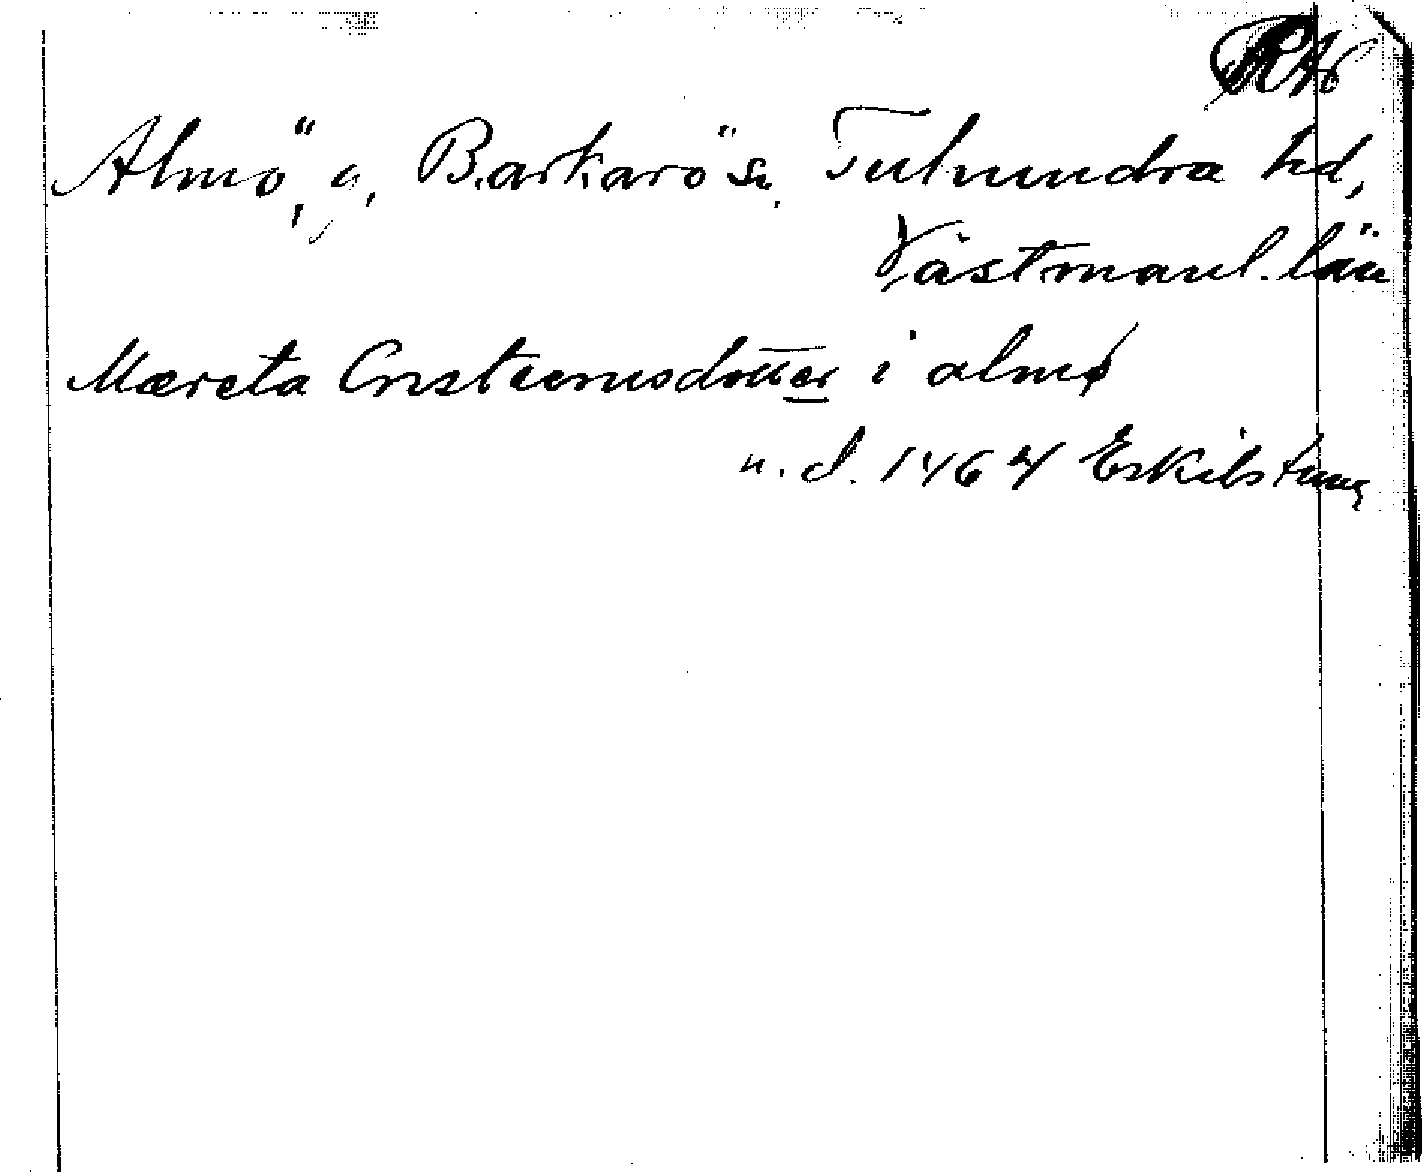 RA
Almö, g, Barkarö sn, Tuhundra hd,
Västmanl. län
Mæreta Cristiernsdotter i almø
u. d. 1464 Eskilstuna